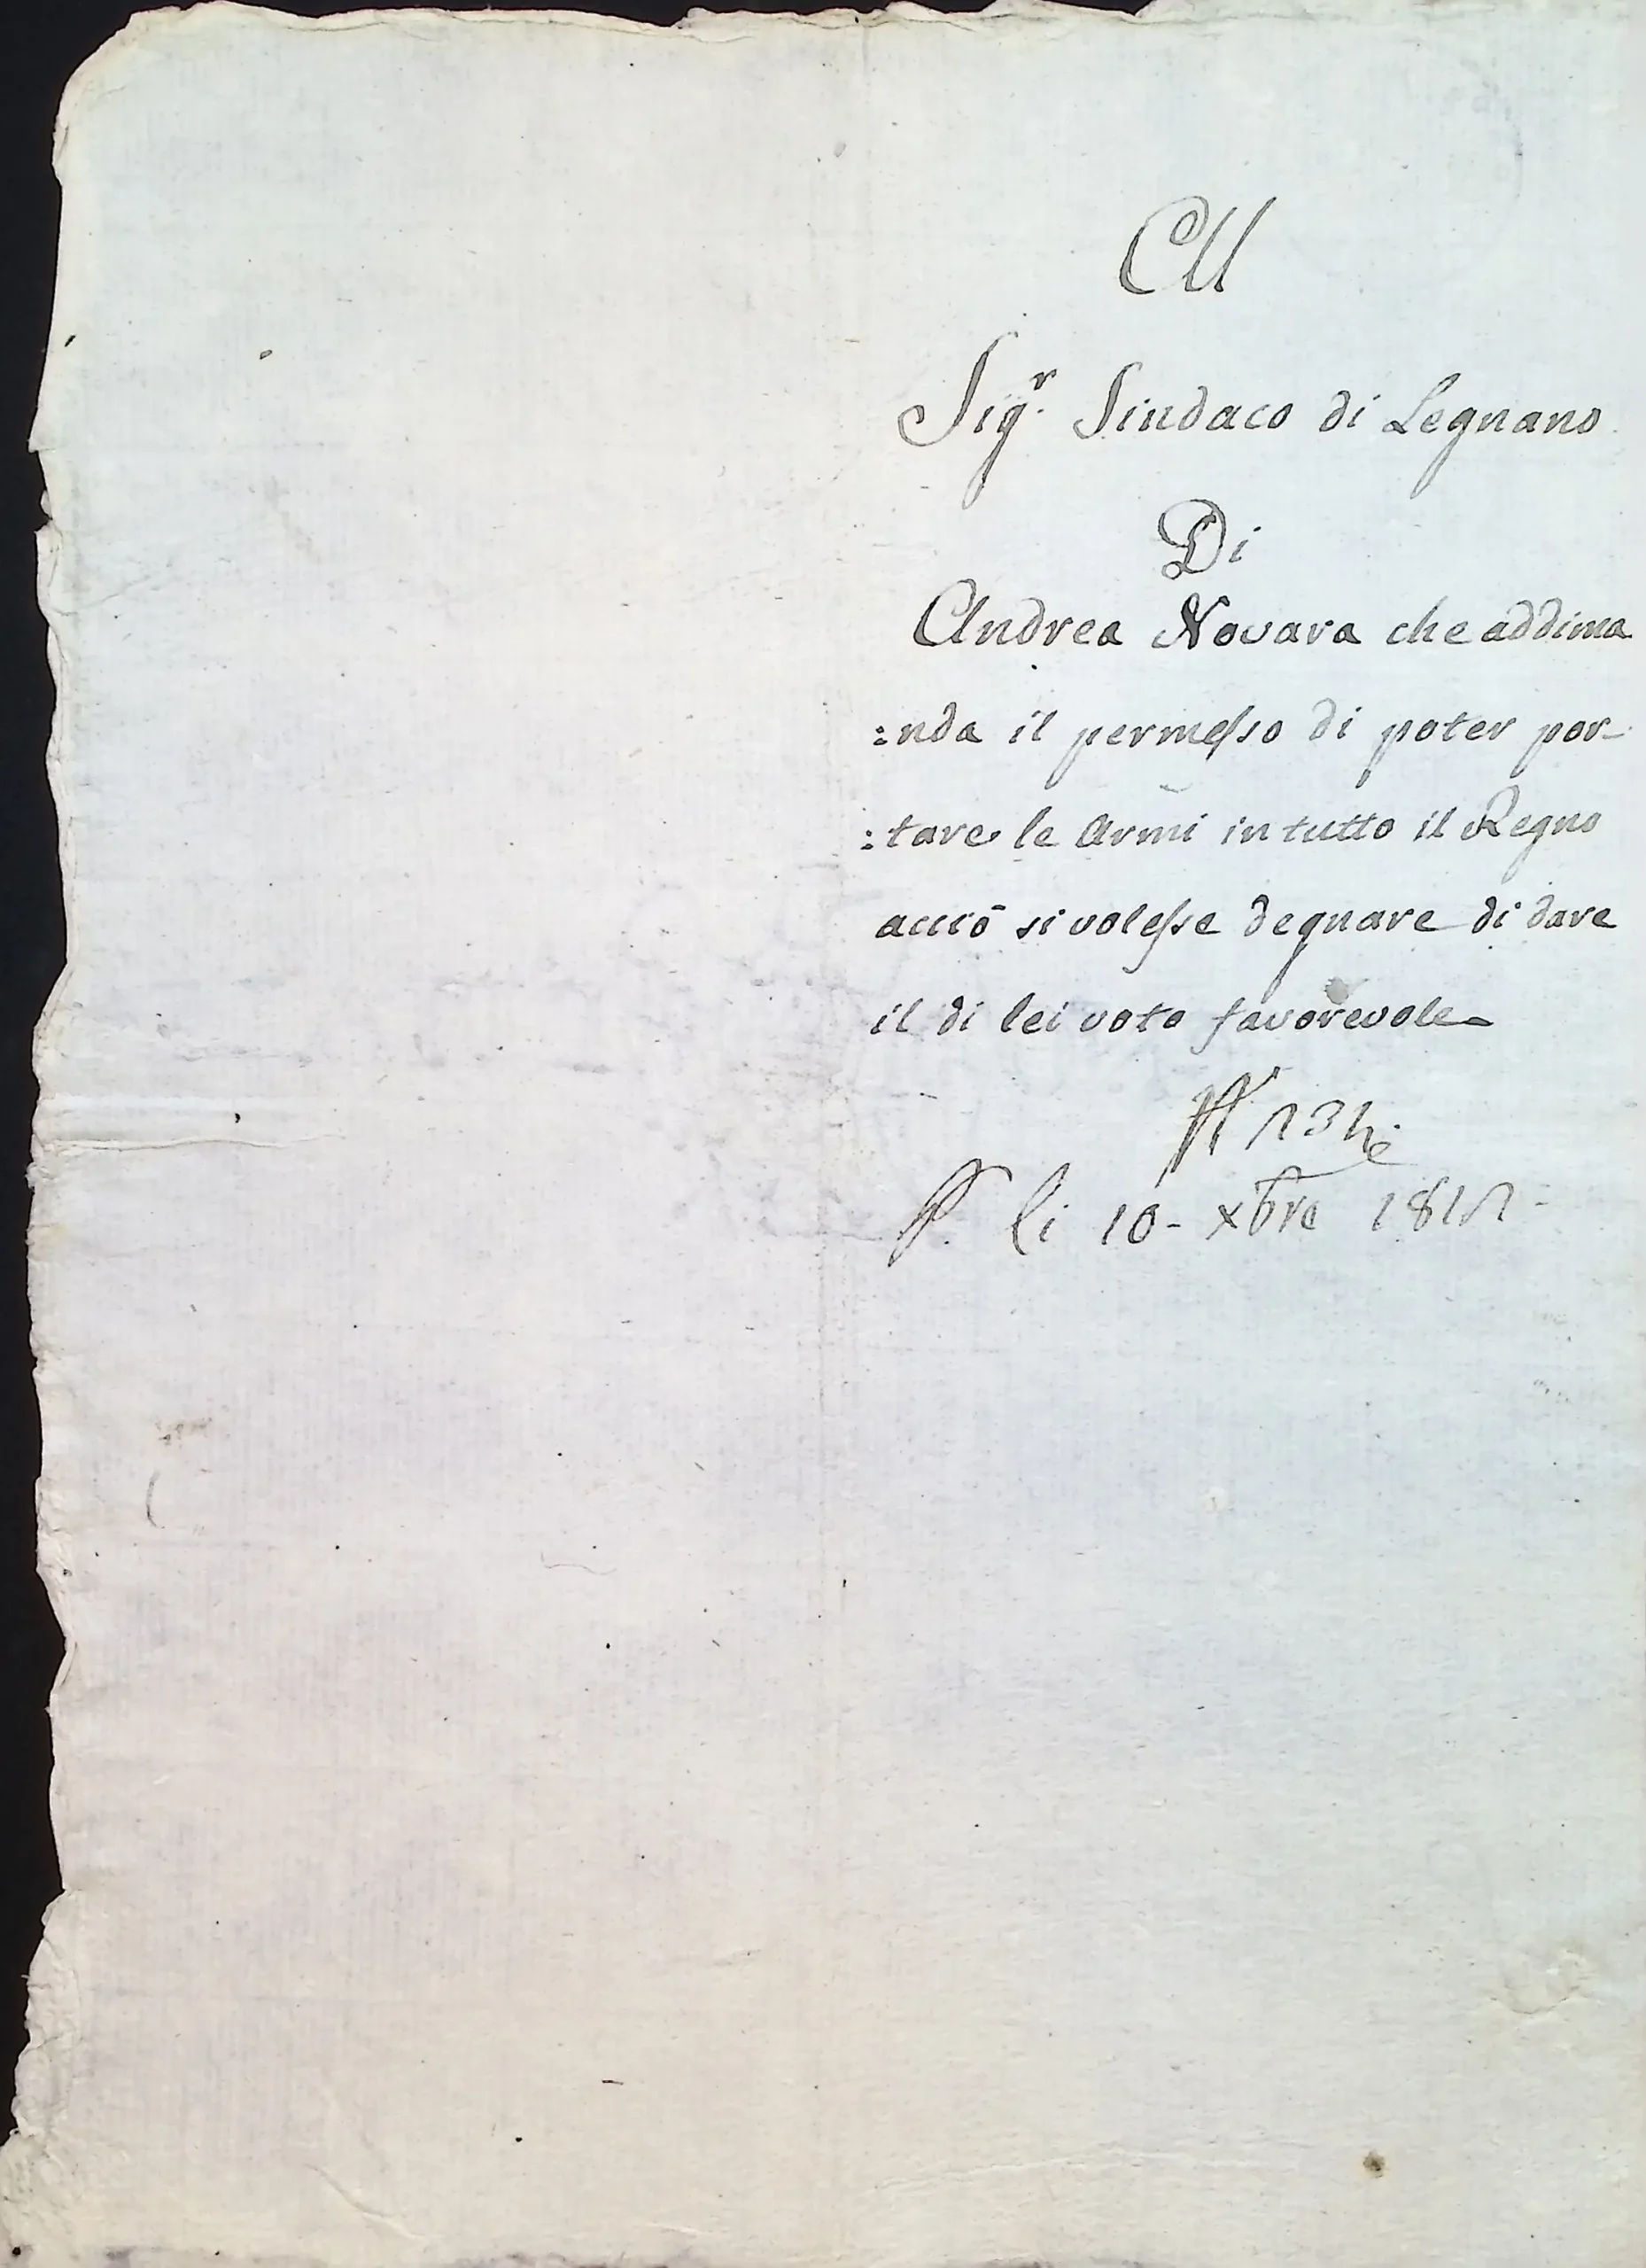 All
Sig.r Sindaco di Legnano
Di
Andrea Novara che addima
:nda il permesso di poter por-
:tare le Armi in tutto il Regno
acciò si volesse degnare di dare
il di lei voto favorevole
P. li 10 - xbre 181